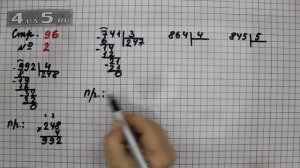 4DA5.RU
Стр. 96
№ 2
-741 3
6 247
-14
12
-21
21
0
864 4
845 5
-992 4
8 248
-19
16
-32
32
0
пр.:
пр.:
1 3
× 248
4
992